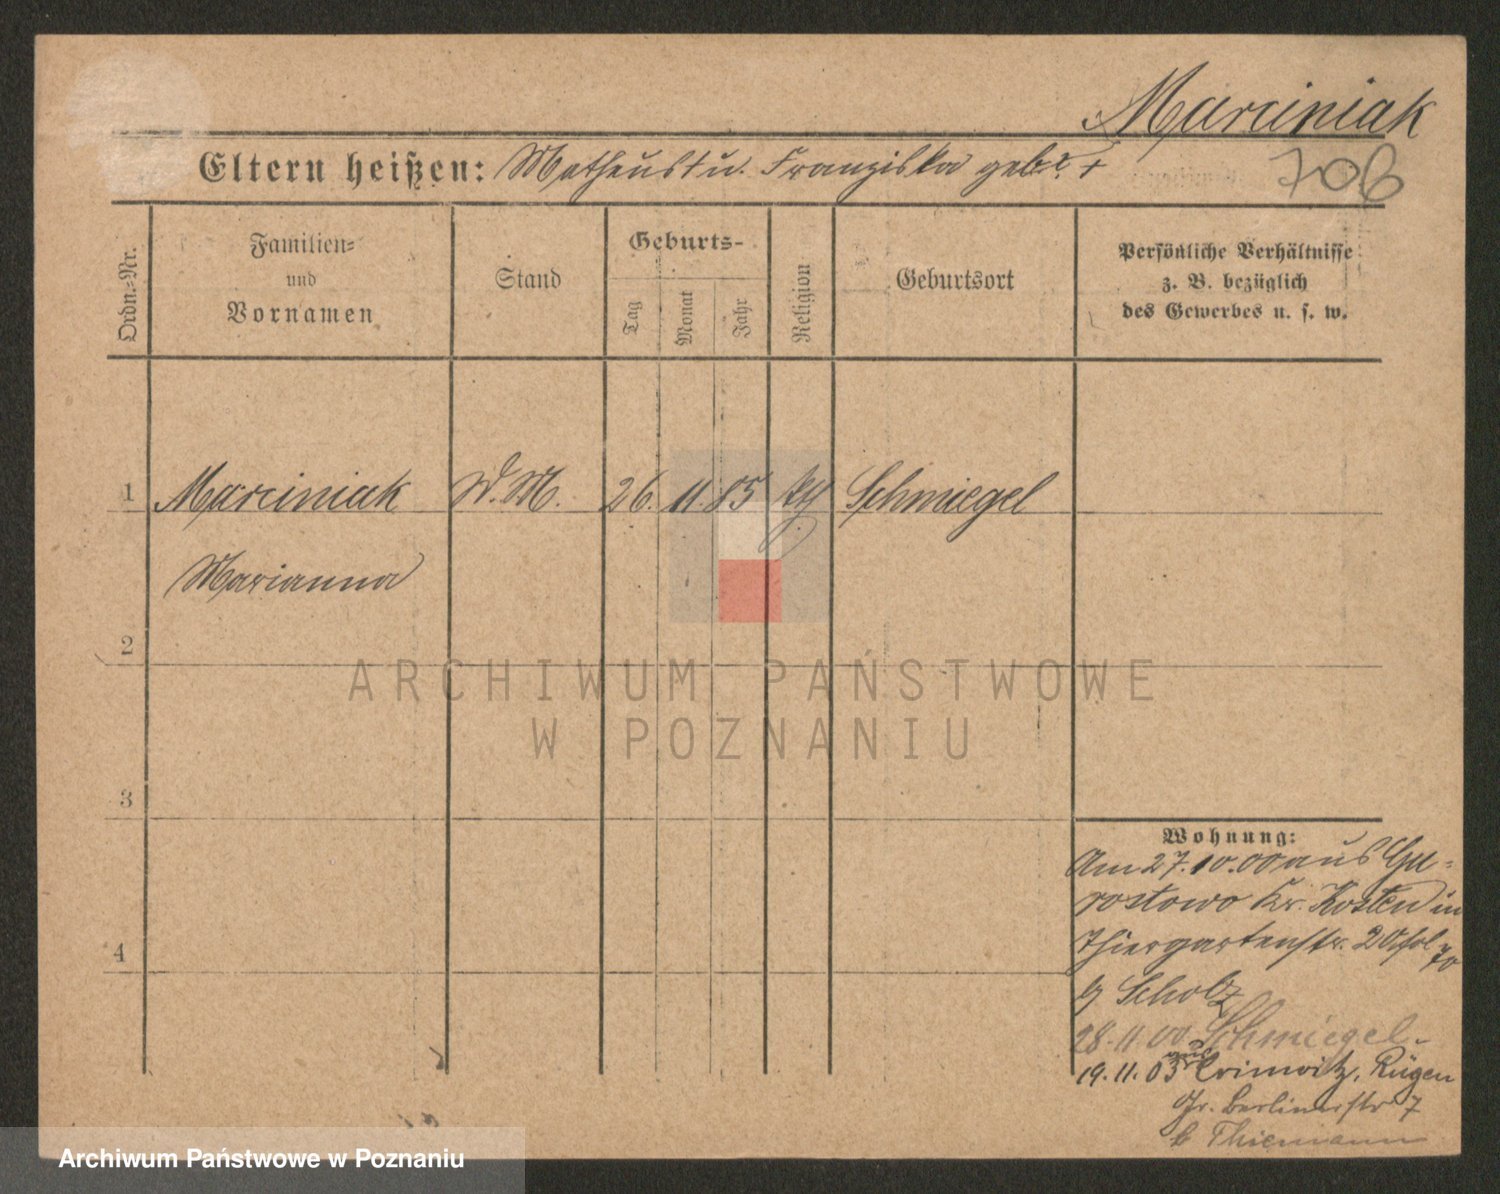 Marciniak
Eltern heißen: Matheus † u. Franziska geb. ? +
706
Ordn.-Nr.
Familien-
und
Vornamen
Stand
Geburts-
Tag
Monat
Jahr
Religion
Geburtsort
Persönliche Verhältnisse
z. B. bezüglich
des Gewerbes u. s. w.
1 Marciniak D. M. 26. 11. 85 Schmiegel
Marianna
2
3
4
ARCHIWUM PAŃSTWOWE
W POZNANIU
Wohnung:
Am 27.10.00 aus Gu-
rostowo Kr. Kosten in
Thiergartenstr. 20
b Scholz
28.11.00 Schmiegel.
19.11.03 aus Crimvitz, Rügen
Gr. Berlinerstr 7
b Thiemann
Archiwum Państwowe w Poznaniu